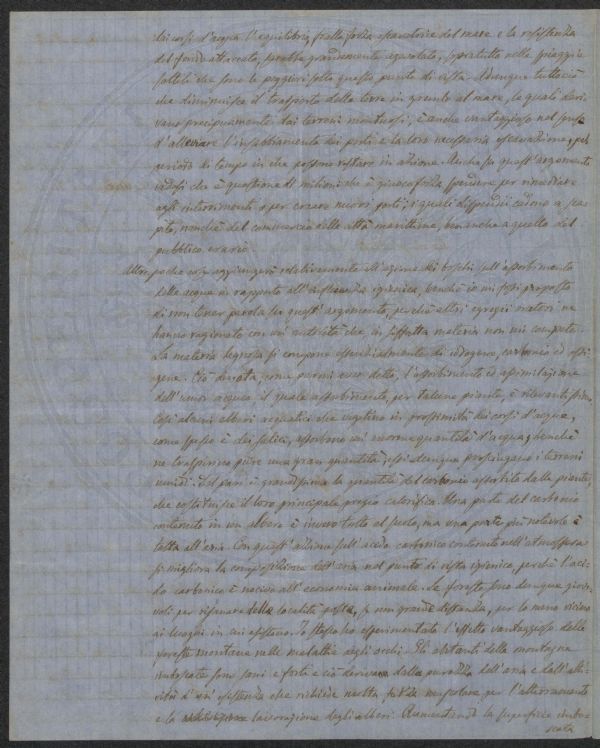 dei corsi d'acqua. L'equilibrio fralla forza escavatrice del mare e la resistenza
del fondo attaccato, sarebbe grandemente agevolato, sopratutto nelle spiaggie
sottili che sono le peggiori sotto questo punto di vista. Adunque tuttociò
che diminuisce il trasporto delle terre in grembo al mare, le quali deri-
vano precipuamente dai terreni montuosi, è anche vantaggioso nel senso
d'alleviare l'insabbiamento dei porti e la loro necessaria escavazione, pel
periodo di tempo in che possono restare in azione. Anche su quest'argomento
vedesi che è questione di milioni che è giuocoforza spendere per rimediare
agli interrimenti o per creare nuovi porti; i quali dispendii cadono a sca-
pito, nonchè del commercio nelle città marittime, ben anche a quello del
pubblico erario.
Altre poche cose aggiungerò relativamente all'azione dei boschi sull'assorbimento
delle acque in rapporto all'influenza igienica, benchè io mi fossi proposto
di non tener parola su quest'argomento, perchè altri egregii autori ne
hanno ragionato con un'autorità che in siffatta materia non mi compete.
La materia legnosa si compone essenzialmente di idrogeno, carbonio ed ossi-
geno. Ciò denota, come parmi aver detto, l'assorbimento ed assimilazione
dell'umor acqueo il quale assorbimento, per talune piante, è rilevantissimo.
Così alcuni alberi acquatici che vegetano in prossimità dei corsi d'acqua,
come spesso è dei salici, assorbono un'enorme quantità d'acqua, benchè
ne traspirino pure una gran quantità; essi dunque prosciugano i terreni
umidi. Del pari è grandissima la quantità del carbonio assorbito dalle piante,
che costituisce il loro principale pregio calorifico. Una parte del carbonio
contenuto in un albero è invero tolto al suolo, ma una parte più notevole è
tolta all'aria. Con quest'azione sull'acido carbonico contenuto nell'atmosfera
si migliora la composizione dell'aria nel punto di vista igienico, perchè l'aci-
do carbonico è nocivo all'economia animale. Le foreste sono dunque giove-
voli per risanare delle località poste, se non a grande distanza, per lo meno vicino
ai luoghi in cui esistono. Io stesso ho esperimentato l'effetto vantaggioso delle
foreste montane nelle malattie degli occhi. Gli abitanti delle montagne
imboscate sono sani e forti e ciò derivano dalla purezza dell'aria e dall'abi-
tudine d'un'esistenza che richiede molta forza muscolare per l'atterramento
e la lavorazione degli alberi. Aumentando la superficie imbo-
scata